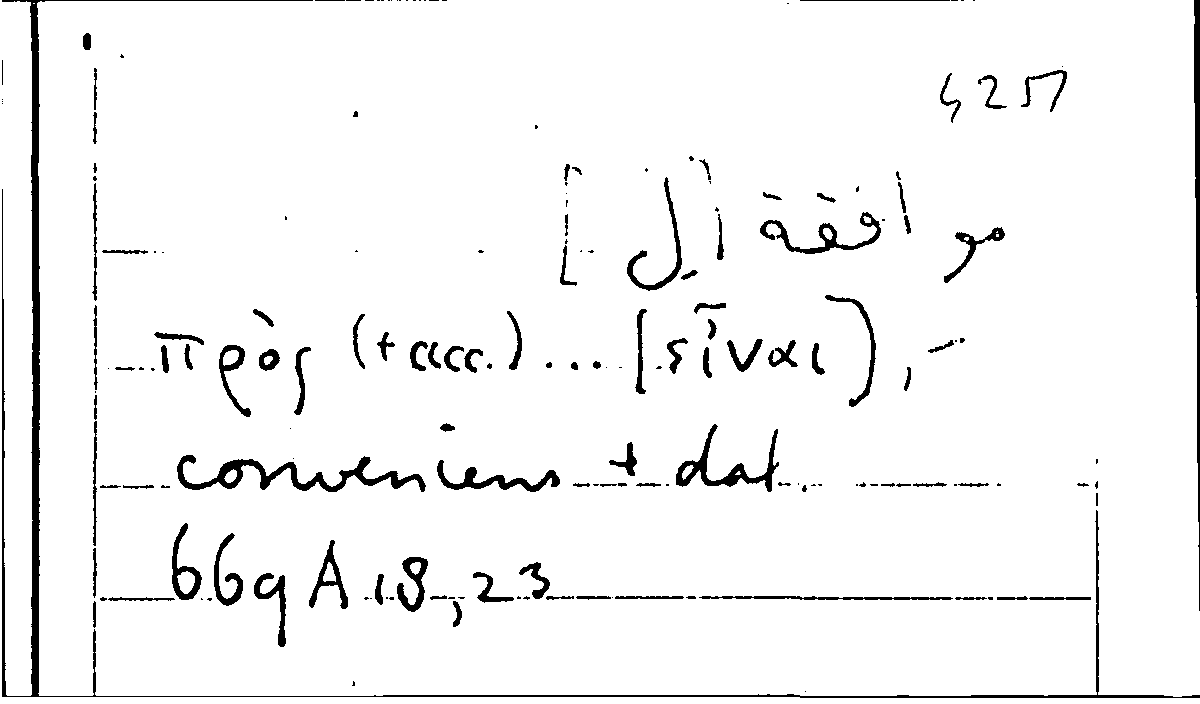 موافقة [لِ]
πρὸς (+ acc.) ... [εἶναι], –
conveniens + dat.
669 A 18, 23